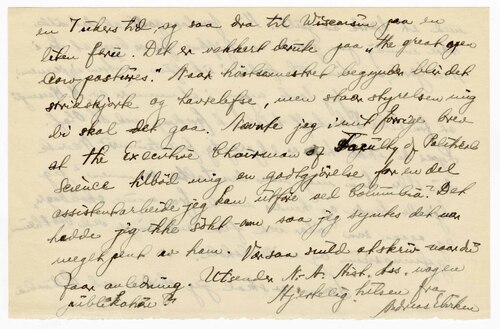 en 7 ukers tid, og saa dra til Wisconsin paa en
liten ferie. Det er vakkert derute paa "the great open
cow-pastures." Naar høstsemestret begynder blir det
stridskjorte og havrelefse, men staar styrelsen mig
bi skal det gaa. Nevnte jeg i mit forrige brev
at the Executive Chairman of Faculty of Political
Science tilbød mig en godtgjörelse for en del
assistentarbeide jeg kan utföre ved Columbia? Det
hadde jeg ikke sökt om saa jeg syntes det var
meget pent av ham. Vær saa snild at skriv naar du
faar anledning. Utsender N.-A. Hist. Ass. nogen
publikation?
Hjertelig hilsen fra
Andreas